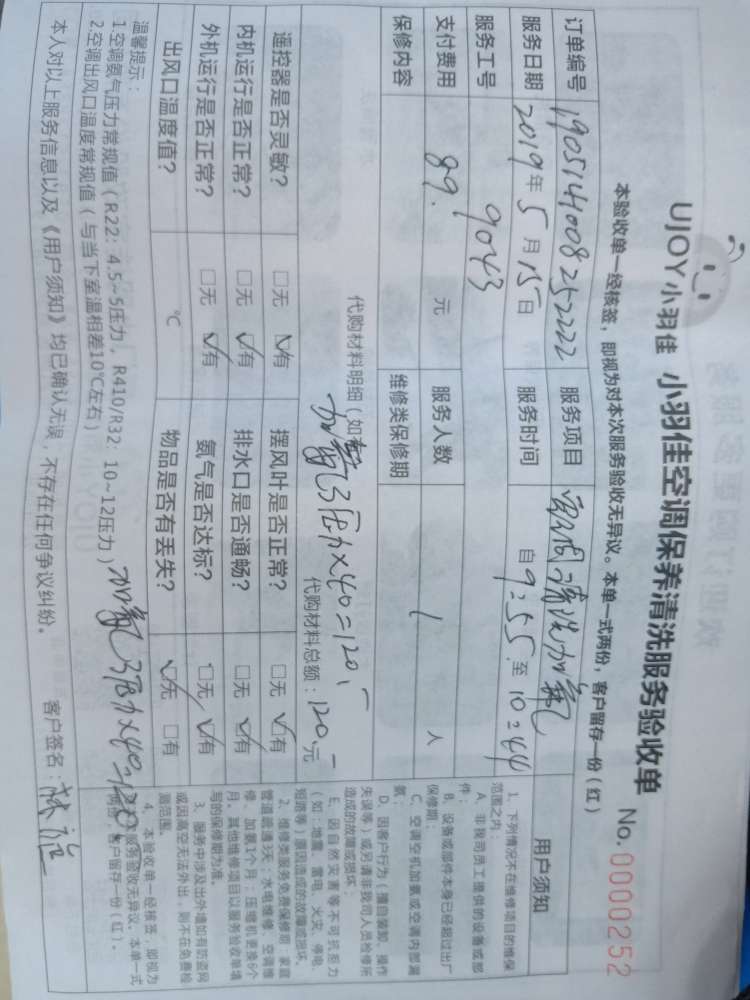 UJOY小羽佳 小羽佳空调保养清洗服务验收单 No.0000252
本验收单一经核签，即视为对本次服务验收无异议。本单一式两份，客户留存一份（红）
订单编号 1905141008252222 服务项目 空调清洗加氟
服务日期 2019年5月15日 服务时间 自9:55至10:44
服务工号 9043
支付费用 89. 元 服务人数 1 人
保修内容 维修类保修期
代购材料明细（如
加氟3压力×40=120,-
代购材料总额：120元
遥控器是否灵敏？ □无 ☑有 摆风叶是否正常？ □无 ☑有
内机运行是否正常？ □无 ☑有 排水口是否通畅？ □无 ☑有
外机运行是否正常？ □无 ☑有 氨气是否达标？ □无 ☑有
出风口温度值？ ℃ 物品是否有丢失？ ☑无 □有
温馨提示：
1.空调氨气压力常规值（R22：4.5~5压力，R410/R32：10~12压力）
加氟3压力×40=120.
2.空调出风口温度常规值（与当下室温相差10℃左右）
本人对以上服务信息以及《用户须知》均已确认无误，不存在任何争议纠纷。 客户签名：林
用户须知
1、下列情况不在维修项目的维保
范围之内：
A、非我司员工提供的设备或部
件；
B、设备或部件本身已经超过出厂
保修期；
C、空调空机加氨或空调内部漏
氨；
D、因客户行为（擅自装卸、操作
失误等）或另请非我司人员检修所
造成的故障或损坏；
E、因自然灾害等不可抗拒力
（如：地震、雷电、火灾、停电、
短路等）原因造成的故障或损坏。
2、维修类服务免费保修期：家庭
管道疏通3天；水电维修、空调维
修、加氨1个月；压缩机更换6个
月，其他维修项目以服务验收单填
写的保修期为准。
3、服务中涉及出外墙如有防盗网
或因高空无法外出，则不在免费检
测范围。
4、本验收单一经核签，即视为
服务验收无异议。本单一式
两份，客户留存一份（红）。